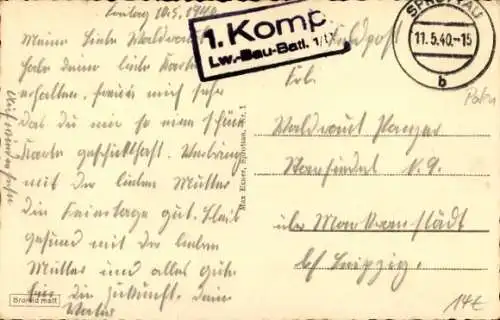 Freitag 10.5.1940
Meine liebe Waldraut
habe deine liebe Karte
erhalten. freue mich sehr
das du mir so eine schöne
Karte geschickt hast. Verbringe
mit der lieben Mutter
die Feiertage gut. Bleib
gesund mit der lieben
Mutter und alles gute
für die Zukunft. Dein
Vater
Auf wiedersehen
1. Komp.
Lw.-Bau-Batl.
SPROTTAU
11.5.40.-15
b
Feldpost
Frl.
Waldraut Panzer
N. 9.
über Markranstädt
bei Leipzig.
Max Exner, Sprottau, Nr. 1
Bromid matt
14€